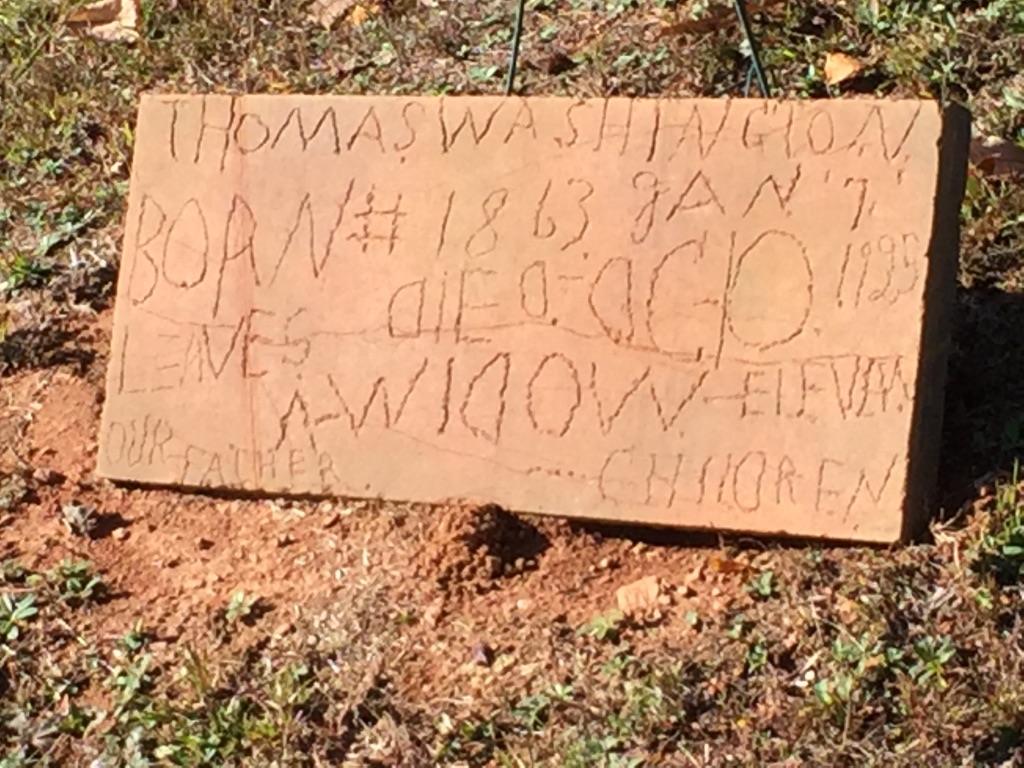 THOMAS. WASHINGTON.
BORN # 1863. JAN '7.'
DIED.- OCT 10. 1925
LEAVES A-WIDOW.-ELEVEN.
OUR FATHER. ---- CHILDREN